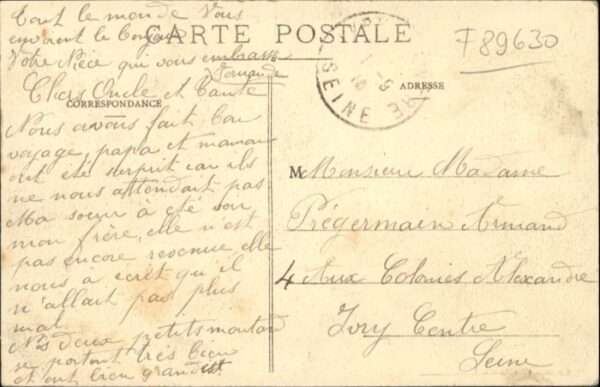 Tout le monde Vous
envoient le Bonjour
Votre Nièce qui vous embrasse
Fernande
CARTE POSTALE
F89630
SEINE
CORRESPONDANCE
ADRESSE
Chers Oncle et Tante
Nous avons fait bon
voyage, papa et maman
ont été surprit car ils
ne nous attendait pas
Ma soeur à été voir
mon frère, elle n'est
pas encore revenue elle
nous à écrit qu'il
n'allait pas plus
mal
Nos deux petits moutons
se portent très bien
et ont bien grandit
M Monsieur Madame
Prégermain Armand
4 Aux Colonies Alexandre
Ivry Centre
Seine